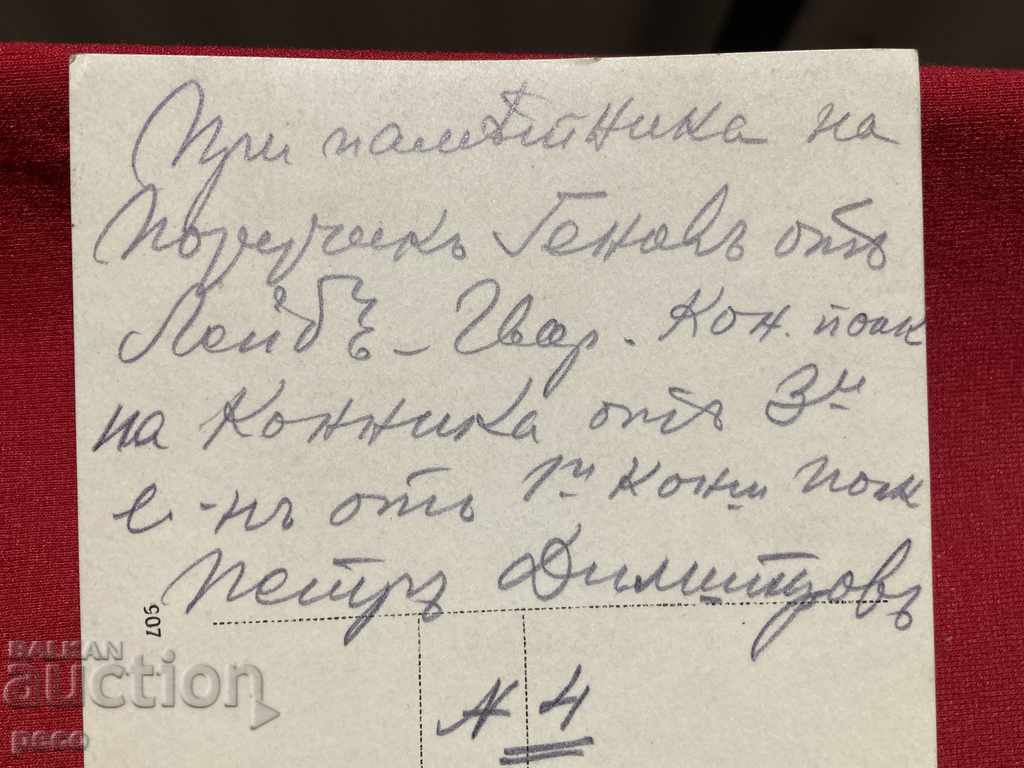 При паметника на
Поручикъ Геновъ отъ
Лейбъ - Гвар. Кон. полк
на Конника отъ 3и
е-нъ отъ 1и Конни Полк
Петръ Димитровъ
705
N 4
BALKAN
auction
peco